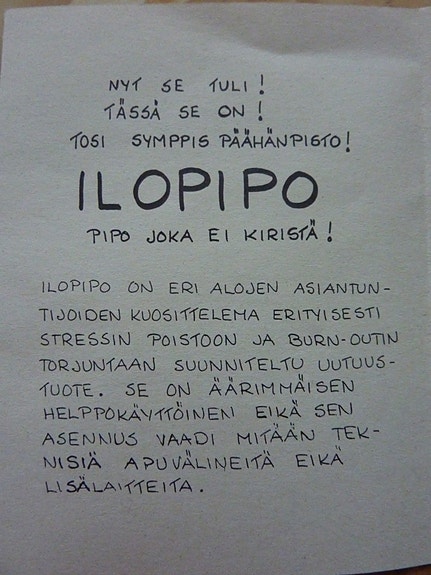 NYT SE TULI!
TÄSSÄ SE ON!
TOSI SYMPPIS PÄÄHÄNPISTO!
ILOPIPO
PIPO JOKA EI KIRISTÄ!
ILOPIPO ON ERI ALOJEN ASIANTUN-
TIJOIDEN KUOSITTELEMA ERITYISESTI
STRESSIN POISTOON JA BURN-OUTIN
TORJUNTAAN SUUNNITELTU UUTUUS-
TUOTE. SE ON ÄÄRIMMÄISEN
HELPPOKÄYTTÖINEN EIKÄ SEN
ASENNUS VAADI MITÄÄN TEK-
NISIÄ APUVÄLINEITÄ EIKÄ
LISÄLAITTEITA.